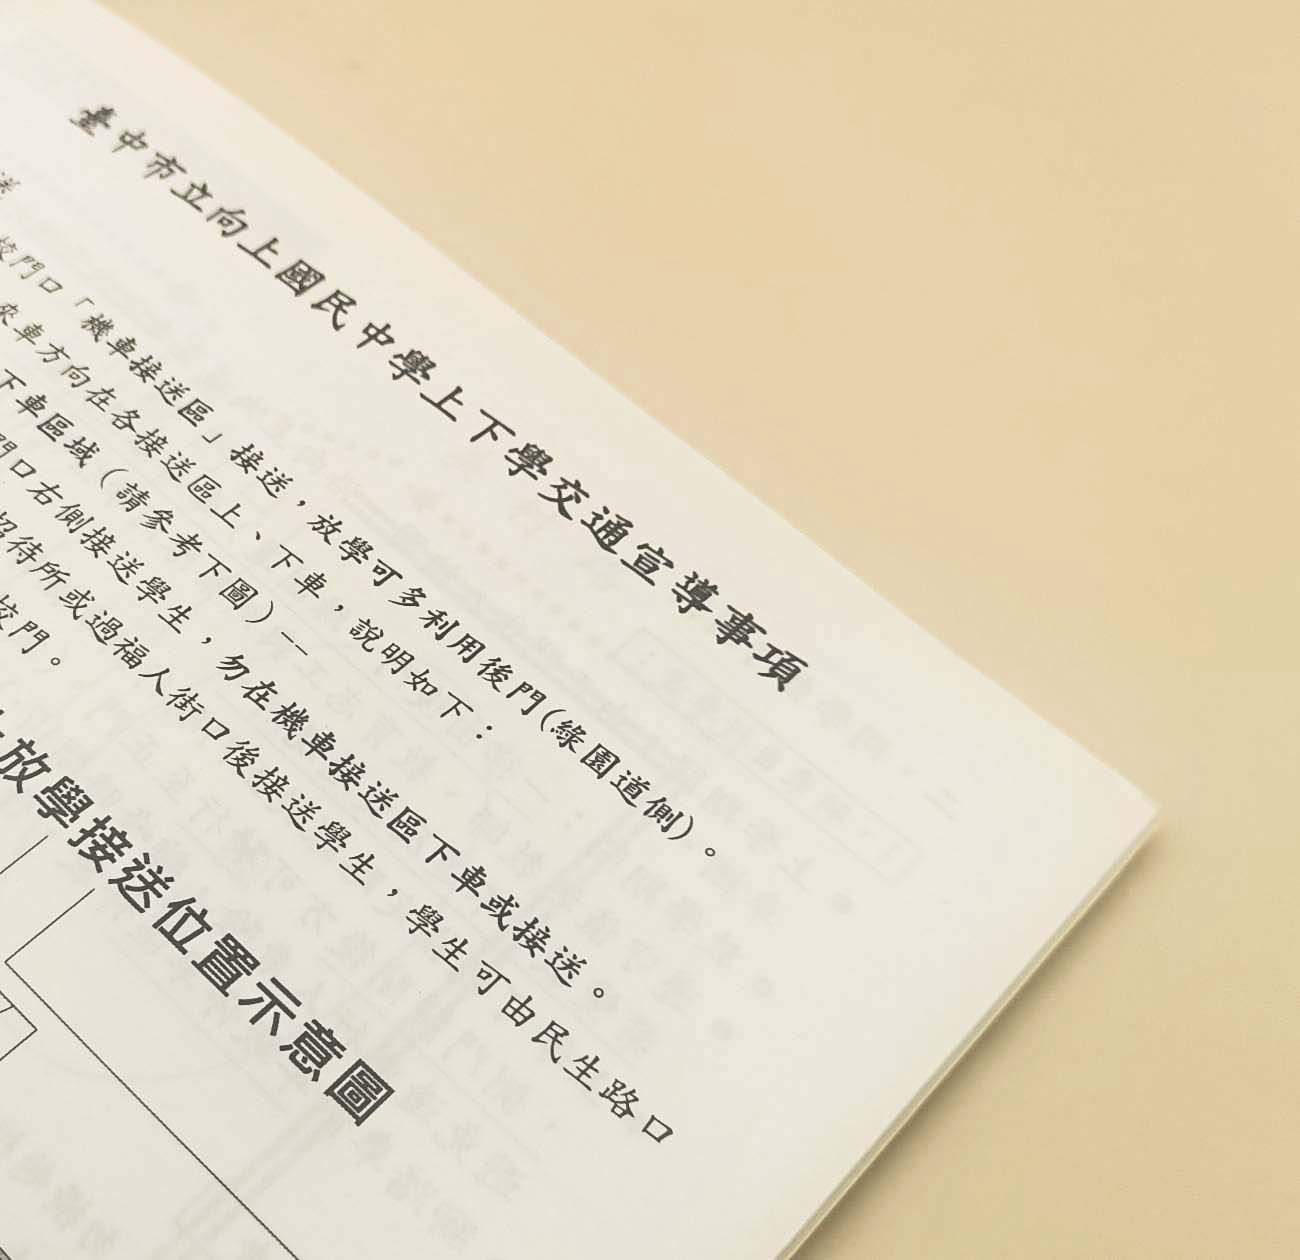 臺中市立向上國民中學上下學交通宣導事項
送
校門口「機車接送區」接送，放學可多利用後門(綠園道側)。
來車方向在各接送區上、下車，說明如下：
下車區域（請參考下圖）－
門口右側接送學生，勿在機車接送區下車或接送。
招待所或過福人街口後接送學生，學生可由民生路口
校門。
放學接送位置示意圖